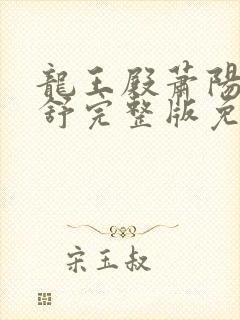 龍王殿蕭陽
舒完整版免
宋玉叔